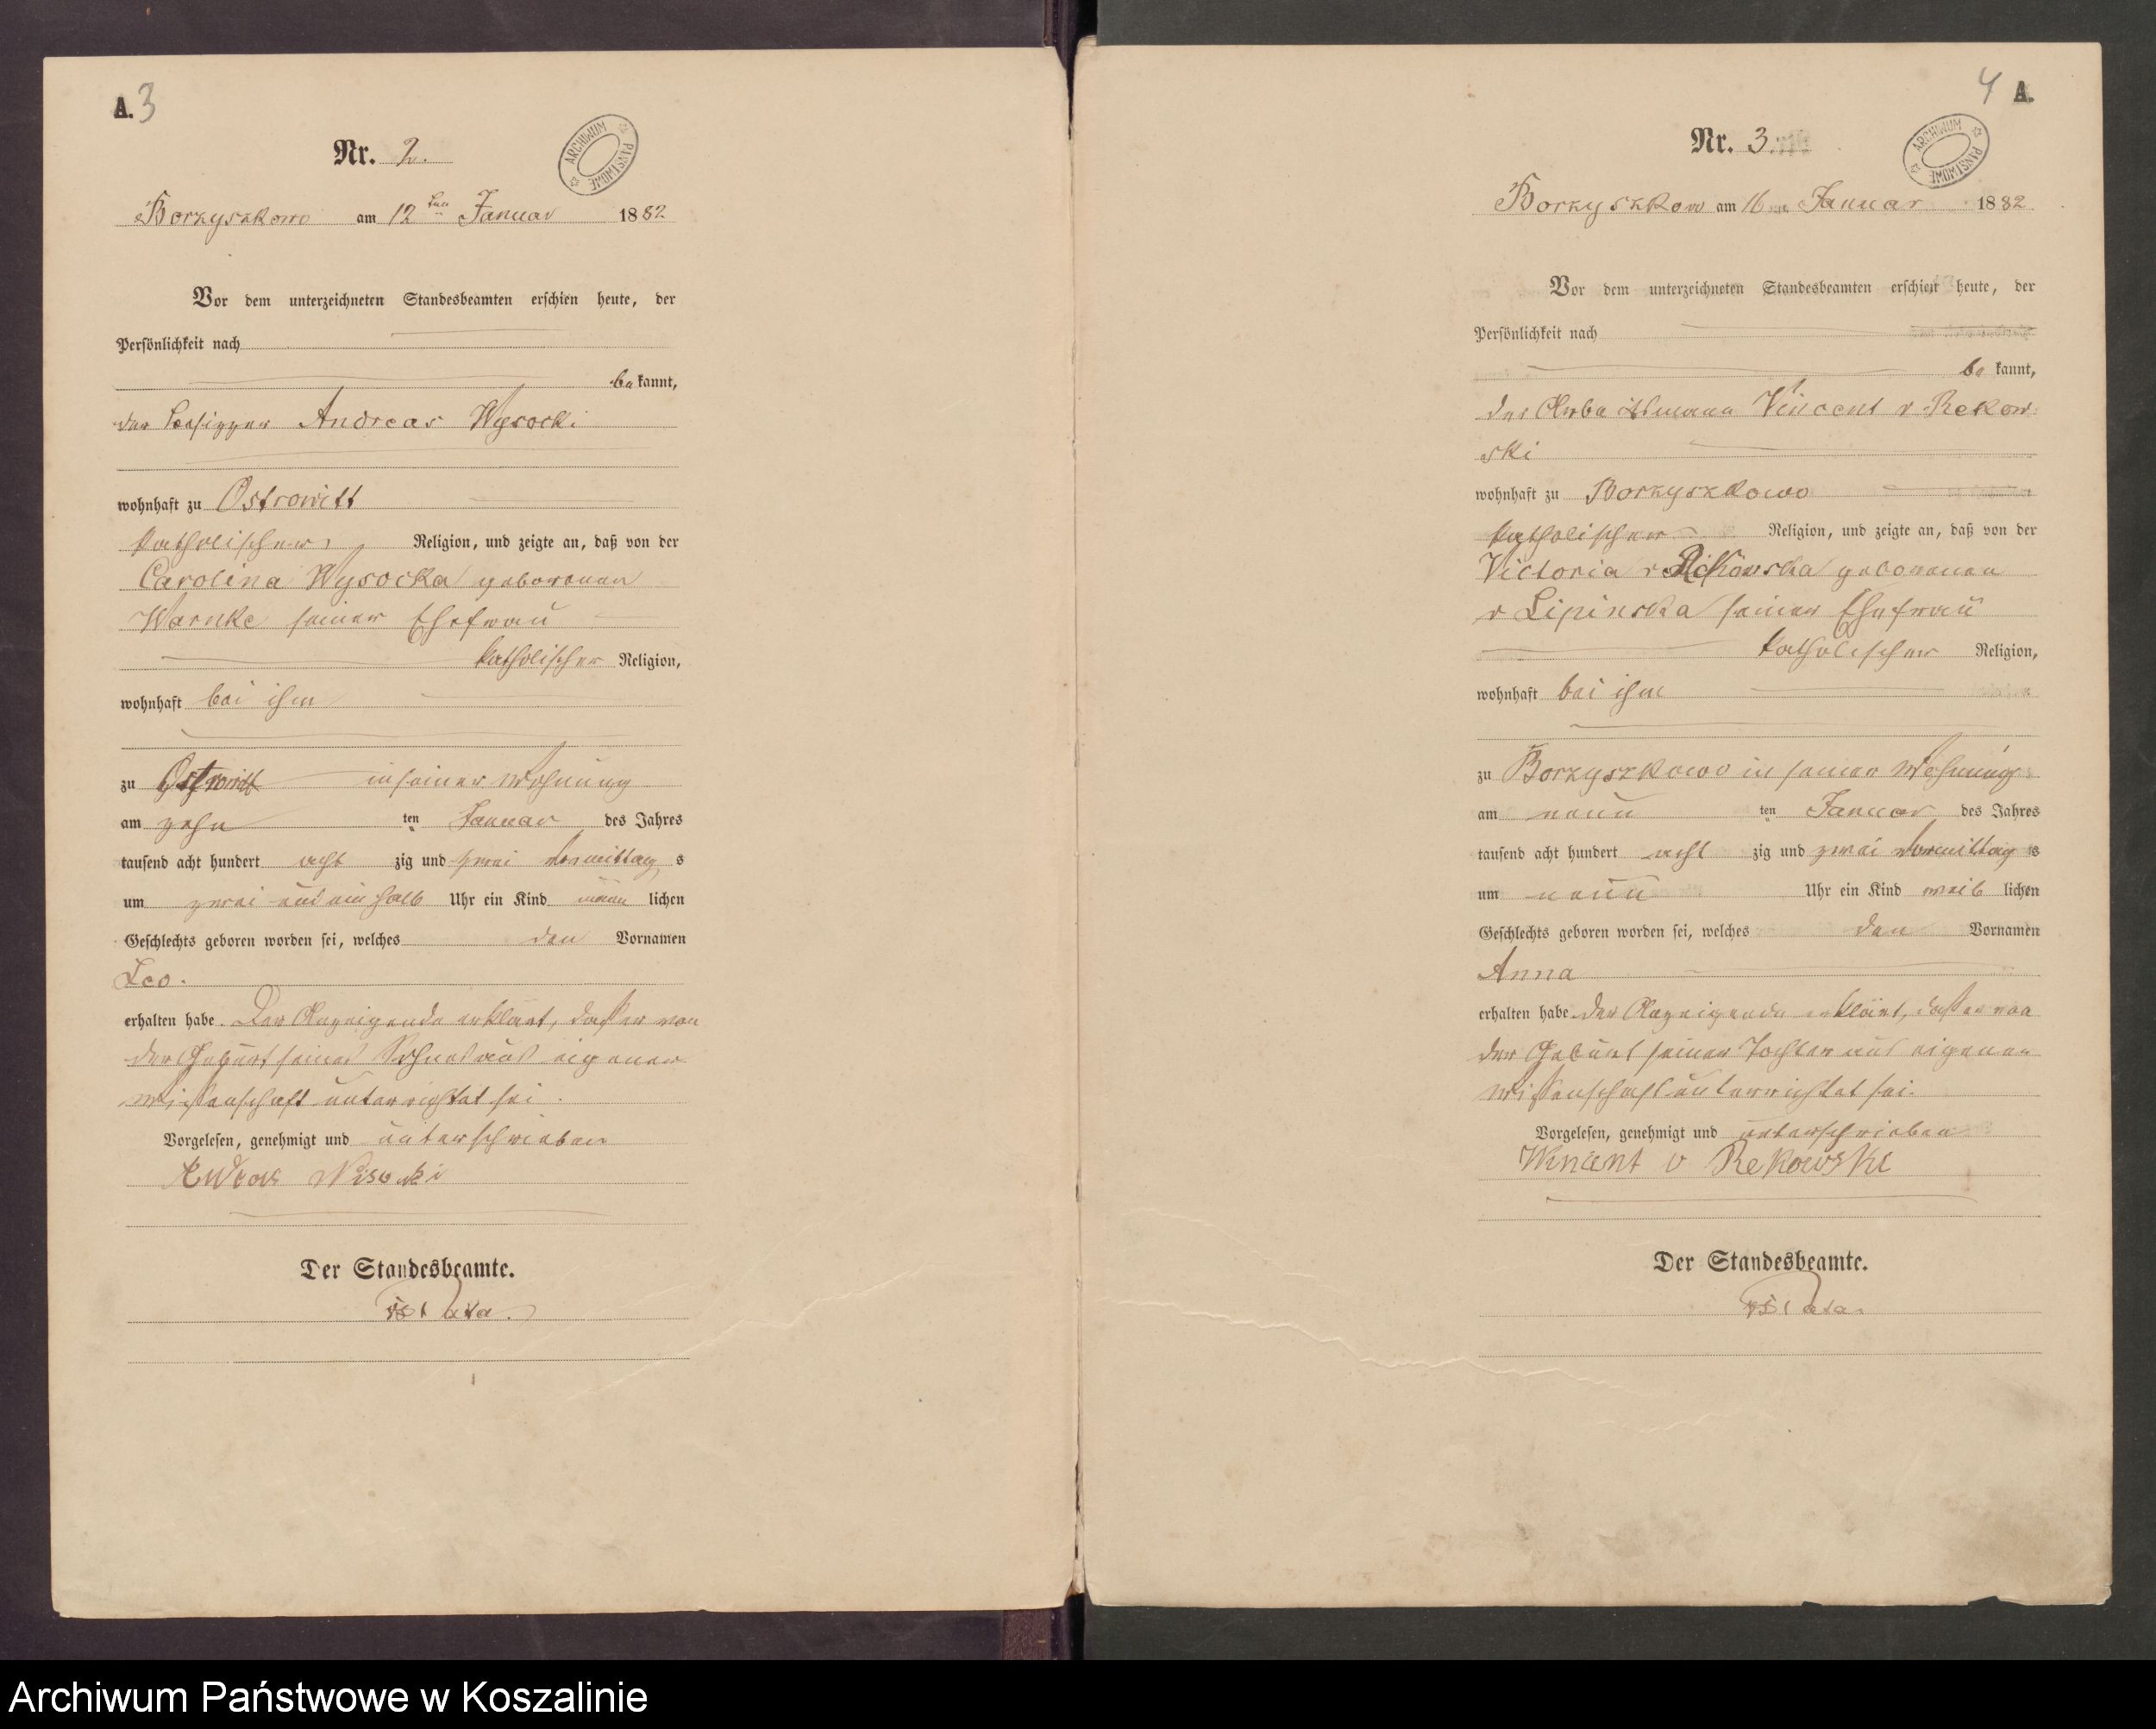 A. 3
Nr. 2.
ARCHIWUM PAŃSTWOWE
Borzyszkowo am 12ten Januar 1882
Vor dem unterzeichneten Standesbeamten erschien heute, der
Persönlichkeit nach
bekannt,
der Besitzer Andreas Wysocki
wohnhaft zu Ostrowitt
katholischer Religion, und zeigte an, daß von der
Carolina Wysocka geborenen
Warnke seiner Ehefrau
katholischer Religion,
wohnhaft bei ihm
zu Ostrowitt in seiner Wohnung
am zehn ten Januar des Jahres
tausend acht hundert acht zig und zwei Vormittag s
um zwei und ein halb Uhr ein Kind männ lichen
Geschlechts geboren worden sei, welches den Vornamen
Leo.
erhalten habe. Der Anzeigende erklärt, daß er von
der Geburt seines Sohnes aus eigener
Wissenschaft unterrichtet sei.
Vorgelesen, genehmigt und unterschrieben
Der Standesbeamte.
4 A.
Nr. 3.
ARCHIWUM PAŃSTWOWE
Borzyszkowo am 16ten Januar 1882
Vor dem unterzeichneten Standesbeamten erschien heute, der
Persönlichkeit nach
bekannt,
der Arbeitsmann Vincent v Rekow-
ski
wohnhaft zu Borzyszkowo
katholischer Religion, und zeigte an, daß von der
Victoria v Rekowska geborenen
v Lipinska seiner Ehefrau
katholischer Religion,
wohnhaft bei ihm
zu Borzyszkowo in seiner Wohnung
am neun ten Januar des Jahres
tausend acht hundert acht zig und zwei Vormittag s
um neun Uhr ein Kind weib lichen
Geschlechts geboren worden sei, welches den Vornamen
Anna
erhalten habe. Der Anzeigende erklärt, daß er von
der Geburt seiner Tochter aus eigener
Wissenschaft unterrichtet sei.
Vorgelesen, genehmigt und unterschrieben
Vincent v Rekowski
Der Standesbeamte.
Archiwum Państwowe w Koszalinie